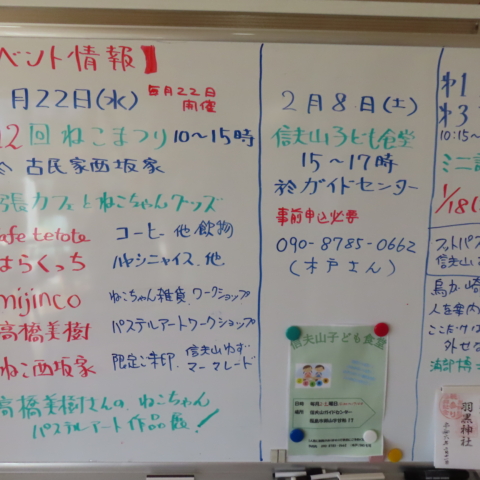 ベント情報
月22日(水)
毎月22日
開催
12回 ねこまつり 10〜15時
於 古民家西坂家
張カフェとねこちゃんグッズ
cafe tetote コーヒー 他 飲物
はらくっち ハヤシニャイス.他
mijinco ねこちゃん雑貨.ワークショップ
高橋美樹 パステルアートワークショップ
ねこ西坂家 限定ご朱印. 信夫山ゆず
マーマレード
高橋美樹さんの、ねこちゃん
パステルアート作品展!
2月8日(土)
信夫山子ども食堂
15〜17時
於 ガイドセンター
事前申込必要
090-8785-0662
(木戸さん)
信夫山子ども食堂
日時
場所 信夫山ガイドセンター
オ1
オ3
10:15〜
ミニ
1/18(
フットパス
信夫山
烏ヶ崎
人を案内
ここだけは
外せな
羽黒神社